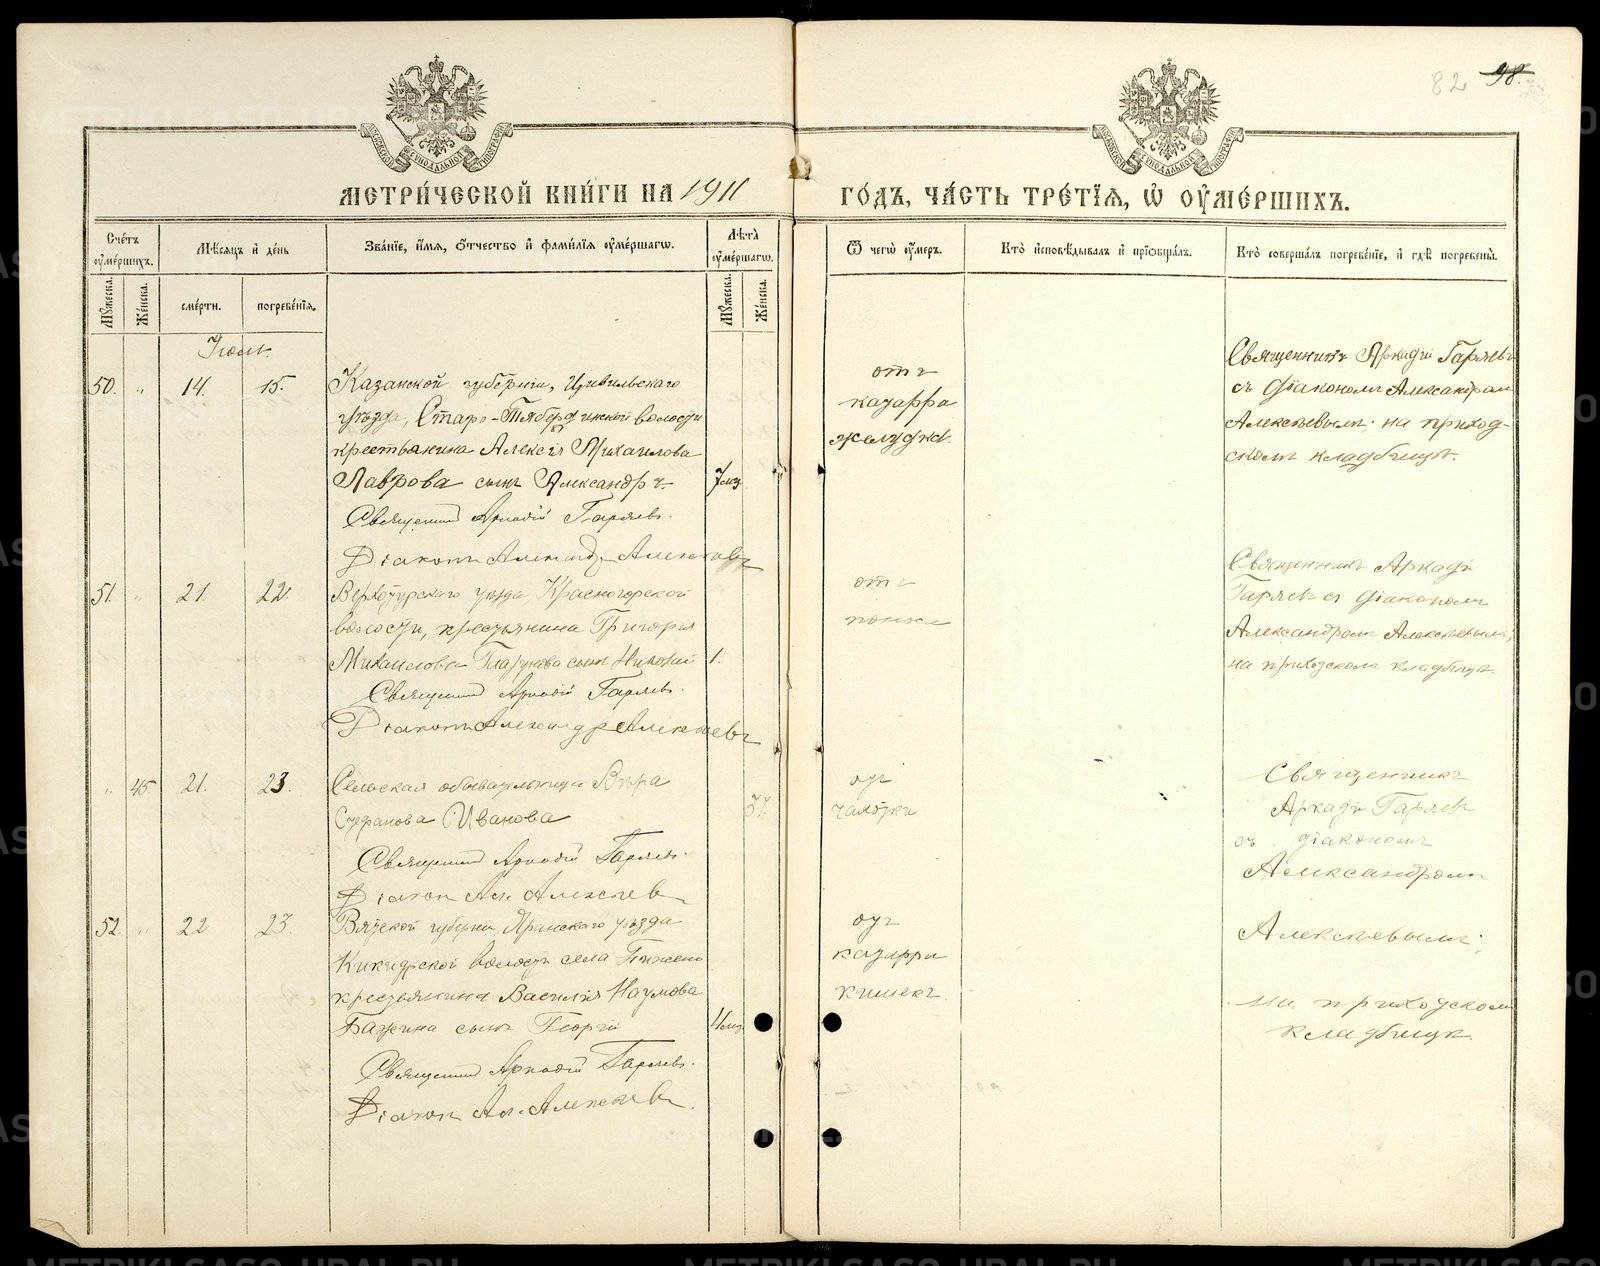 82 98.
МЕТРИ́ЧЕСКОЙ КНИ́ГИ НА 1911 ГО́ДЪ, ЧА́СТЬ ТРЕ́ТІЯ, Ѡ҆ ОУ҆МЕ́РШИХЪ.
Сче́тъ оу҆ме́ршихъ.
Мѣ́сяцъ и҆ де́нь
Зва́ніе, и҆́мя, ѻ҆́тчество и҆ фами́лія оу҆ме́ршагѡ.
Лѣ́та оу҆ме́ршагѡ.
Ѿ чегѡ̀ оу҆́меръ.
Кто̀ и҆сповѣ́дывалъ и҆ прїѻбща́лъ.
Кто̀ соверша́лъ погребе́ніе, и҆ гдѣ̀ погребены̀.
Му́жеска.
Же́нска.
сме́рти.
погребе́нія.
Му́жеска.
Же́нска.
Іюль.
50. " 14. 15.
Казанской губерніи, Цивильскаго
уѣзда, Старо-Тябердинской волости
крестьянина Алексія Михаилова
Лаврова сынъ Александръ.
7 мц.
Священникъ Аркадій Гаряевъ.
Діаконъ Александръ Алексѣевъ
отъ
катарра
желудка.
Священникъ Аркадій Гаряевъ
съ діакономъ Александромъ
Алексѣевымъ; на приход-
скомъ кладбищѣ.
51. " 21. 22.
Верхотурскаго уѣзда, Красногорской
волости, крестьянина Григорія
Михаилова сынъ Николай
1.
Священникъ Аркадій Гаряевъ.
Діаконъ Александръ Алексѣевъ
отъ
поноса
Священникъ Аркадій
Гаряевъ съ діакономъ
Александромъ Алексѣевымъ;
на приходскомъ кладбищѣ.
" 45 21. 23.
Сельская обывательница Вѣра
Стефанова Иванова
37.
Священникъ Аркадій Гаряевъ.
Діаконъ Ал. Алексѣевъ
отъ
чахотки
Священникъ
Аркадій Гаряевъ
съ діакономъ
Александромъ
Алексѣевымъ;
на приходскомъ
кладбищѣ.
52. " 22 23.
Вятской губерніи, Яранскаго уѣзда
волости села
крестьянина Василія Наумова
Бажина сынъ Георгій
4 мц.
Священникъ Аркадій Гаряевъ.
Діаконъ Ал. Алексѣевъ.
отъ
катарра
кишекъ.
METRIKI.GASO-URAL.RU